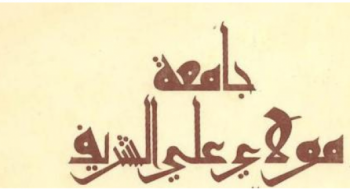 جامعة
مولاي علي الشريف